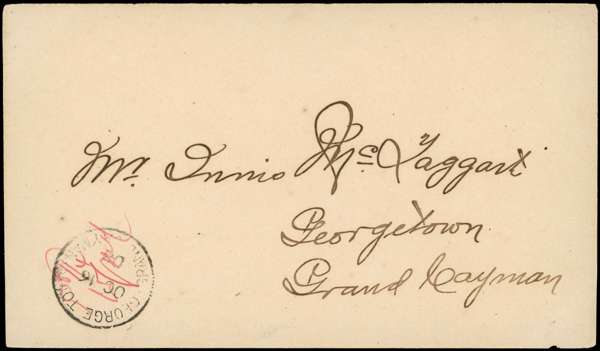 Mr. Innis McTaggart
Georgetown
Grand Cayman
GEORGE TOWN GRAND CAYMAN
OC 15